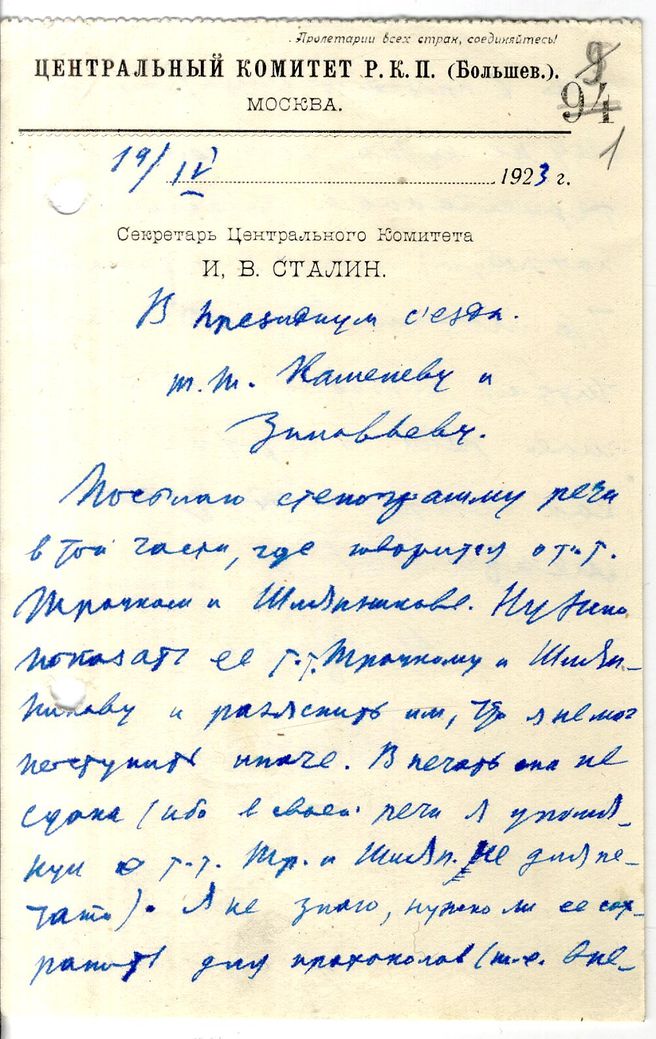 Пролетарии всех стран, соединяйтесь!
ЦЕНТРАЛЬНЫЙ КОМИТЕТ Р.К.П. (Большев.).
МОСКВА.
9
94
1
19/IV 1923 г.
Секретарь Центрального Комитета
И, В. СТАЛИН.
В президиум с'езда.
т.т. Каменеву и
Зиновьеву.
Посылаю стенограмму речи
в той части, где говорится о т.т.
Троцком и Шляпникове. Нужно
показать ее т.т. Троцкому и Шляп-
никову и раз'яснить им, что я не мог
поступить иначе. В печать она не
сдана (ибо в своей речи я упомя-
нул о т.т. Тр. и Шляп. не для пе-
чати). Я не знаю, нужно ли ее сох-
ранить для протоколов (т.е. вне-